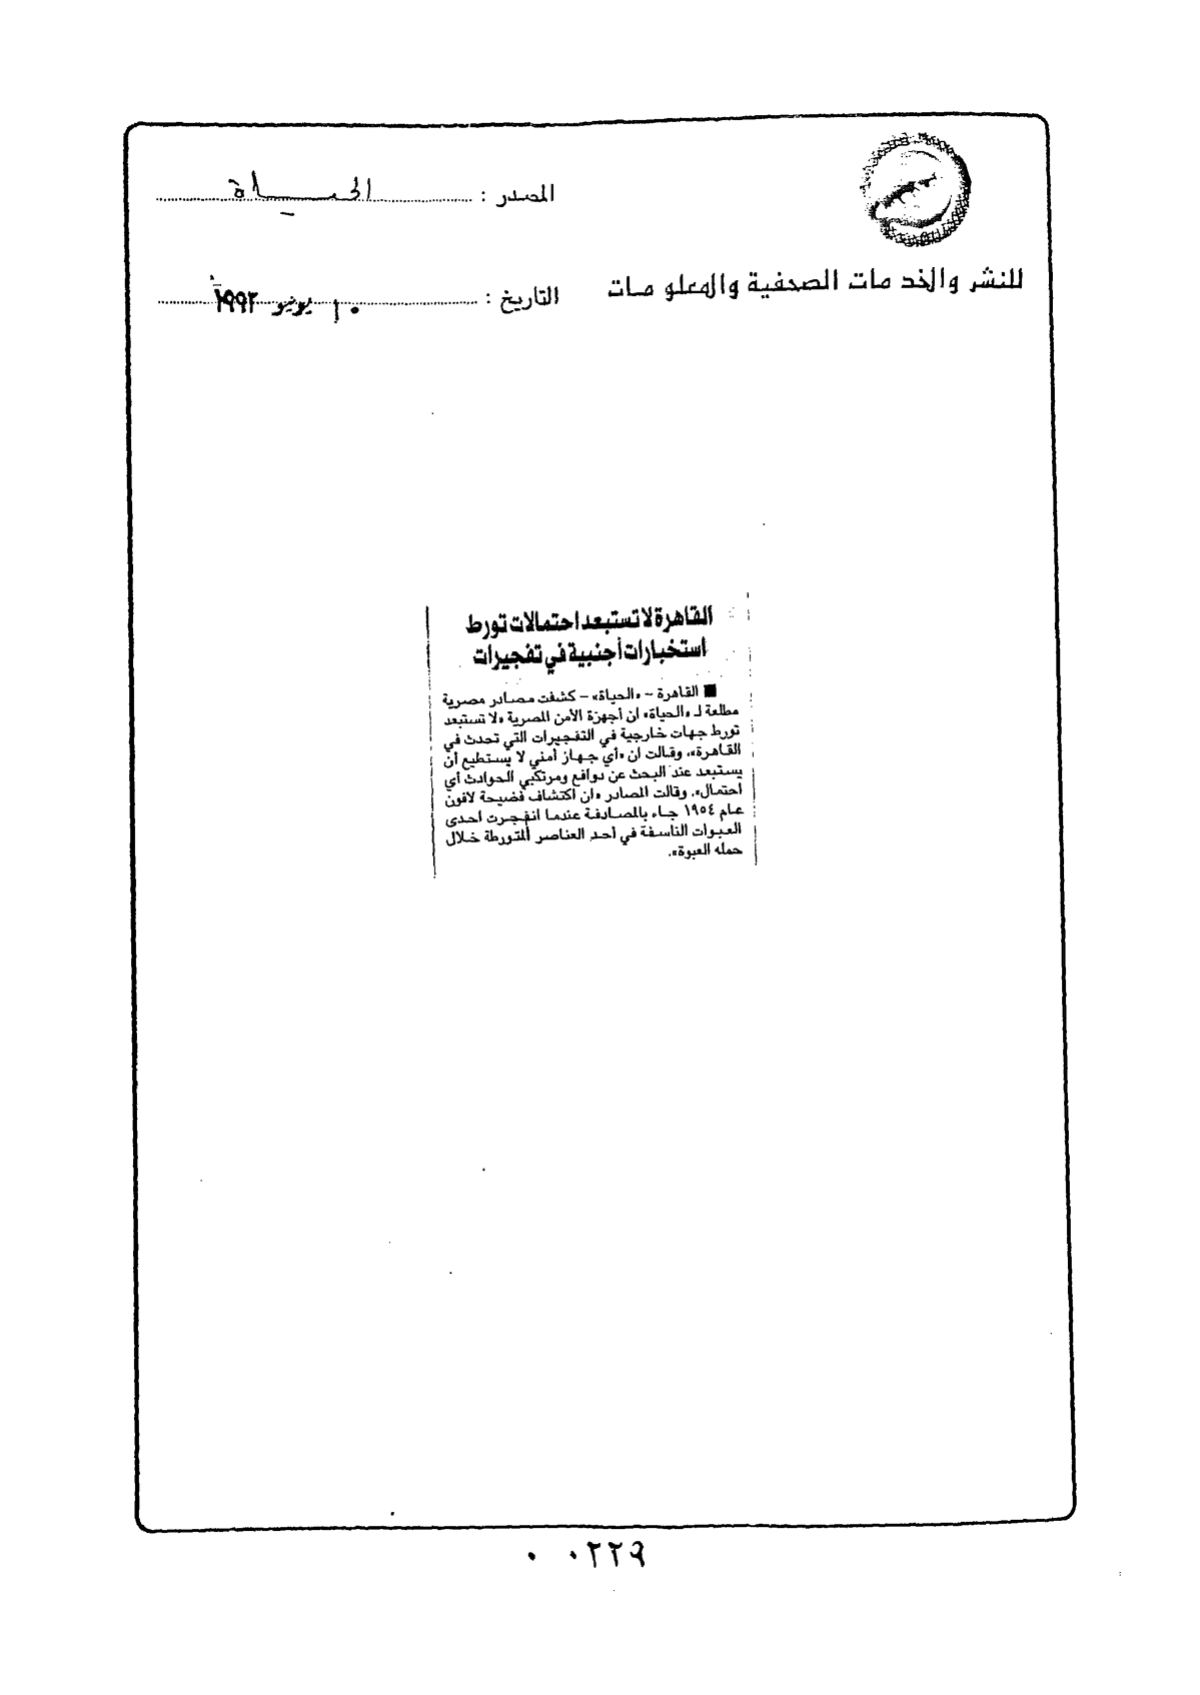 المصدر : الحياة
للنشر والخدمات الصحفية والمعلومات
التاريخ : ١٠ يونيو ١٩٩٣
القاهرة لا تستبعد احتمالات تورط
استخبارات أجنبية في تفجيرات
■ القاهرة - «الحياة» - كشفت مصادر مصرية
مطلعة لـ «الحياة» ان أجهزة الأمن المصرية «لا تستبعد
تورط جهات خارجية في التفجيرات التي تحدث في
القاهرة»، وقالت ان «أي جهاز أمني لا يستطيع أن
يستبعد عند البحث عن دوافع ومرتكبي الحوادث أي
احتمال». وقالت المصادر «ان اكتشاف فضيحة لافون
عام ١٩٥٤ جاء بالمصادفة عندما انفجرت احدى
العبوات الناسفة في أحد العناصر المتورطة خلال
حمله العبوة».
٠٠٢٢٩